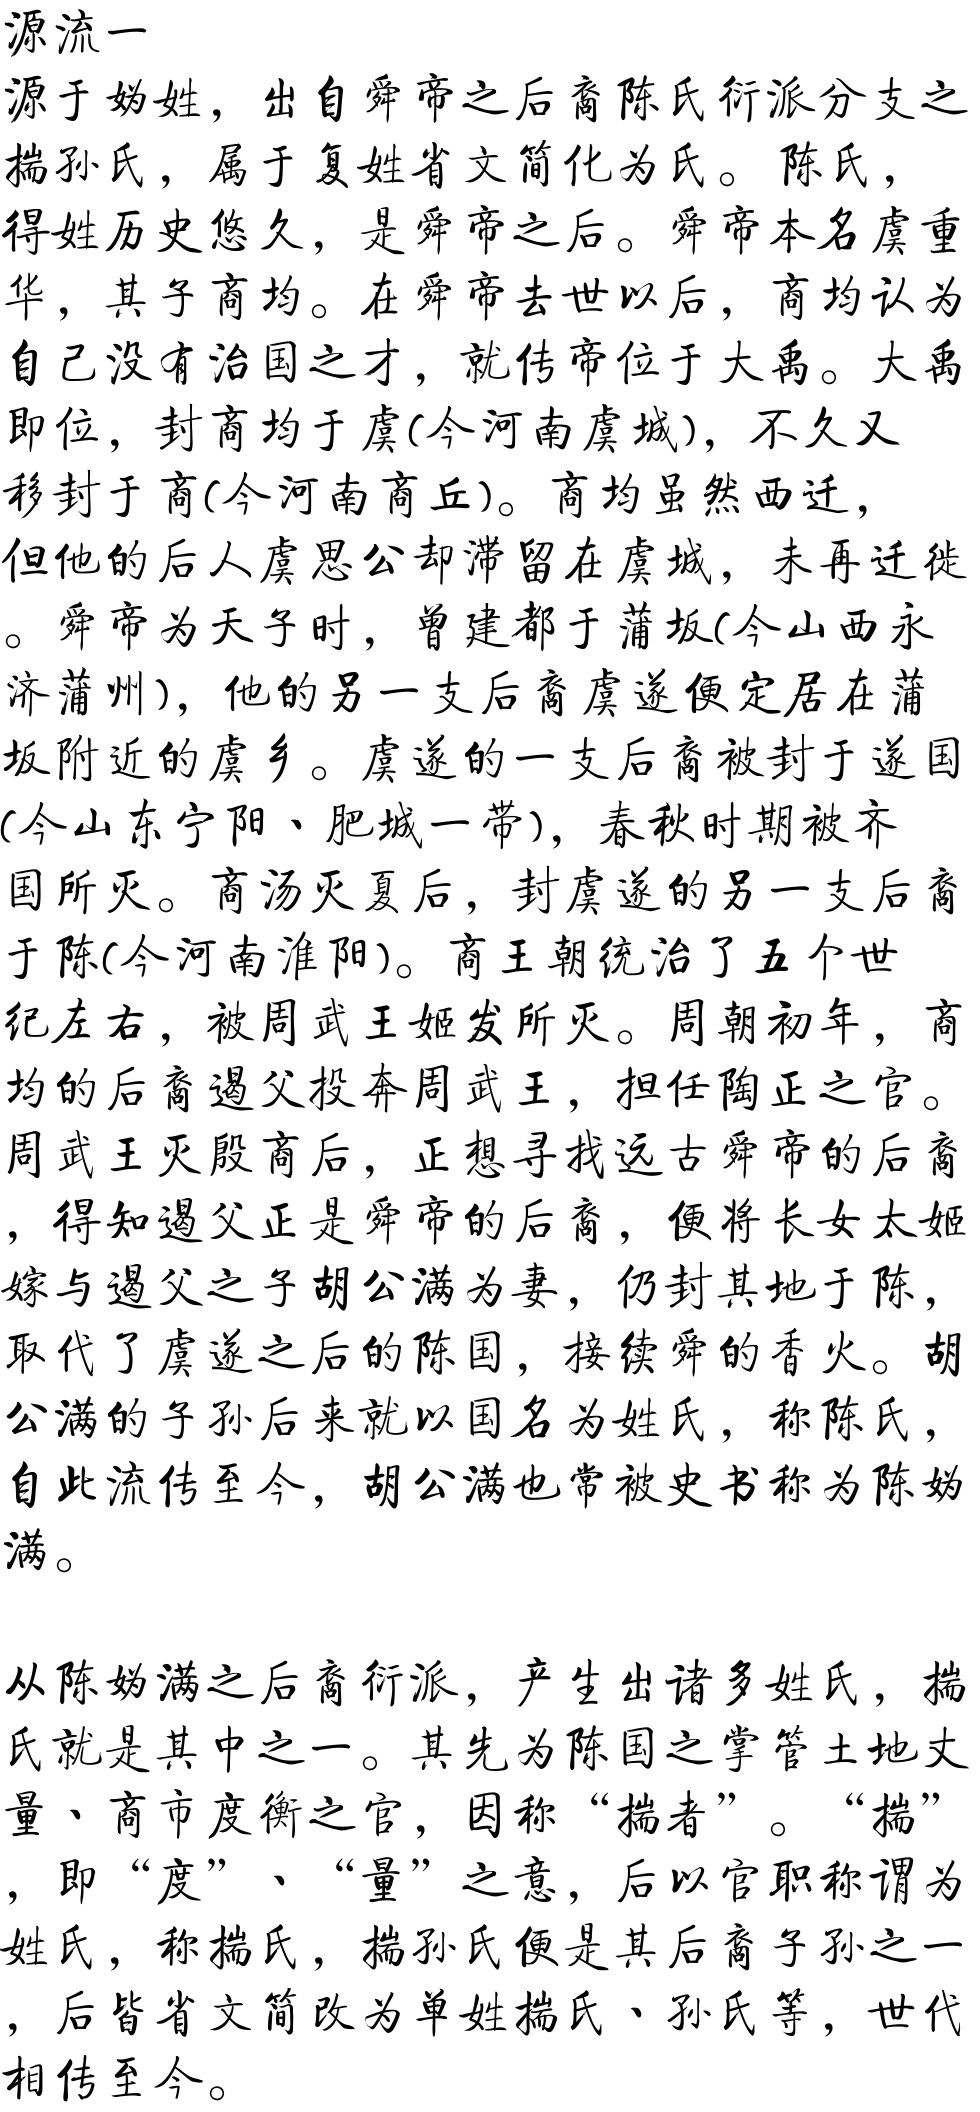 源流一
源于妫姓，出自舜帝之后裔陈氏衍派分支之
揣孙氏，属于复姓省文简化为氏。陈氏，
得姓历史悠久，是舜帝之后。舜帝本名虞重
华，其子商均。在舜帝去世以后，商均认为
自己没有治国之才，就传帝位于大禹。大禹
即位，封商均于虞(今河南虞城)，不久又
移封于商(今河南商丘)。商均虽然西迁，
但他的后人虞思公却滞留在虞城，未再迁徙
。舜帝为天子时，曾建都于蒲坂(今山西永
济蒲州)，他的另一支后裔虞遂便定居在蒲
坂附近的虞乡。虞遂的一支后裔被封于遂国
(今山东宁阳、肥城一带)，春秋时期被齐
国所灭。商汤灭夏后，封虞遂的另一支后裔
于陈(今河南淮阳)。商王朝统治了五个世
纪左右，被周武王姬发所灭。周朝初年，商
均的后裔遏父投奔周武王，担任陶正之官。
周武王灭殷商后，正想寻找远古舜帝的后裔
，得知遏父正是舜帝的后裔，便将长女太姬
嫁与遏父之子胡公满为妻，仍封其地于陈，
取代了虞遂之后的陈国，接续舜的香火。胡
公满的子孙后来就以国名为姓氏，称陈氏，
自此流传至今，胡公满也常被史书称为陈妫
满。
从陈妫满之后裔衍派，产生出诸多姓氏，揣
氏就是其中之一。其先为陈国之掌管土地丈
量、商市度衡之官，因称“揣者”。“揣”
，即“度”、“量”之意，后以官职称谓为
姓氏，称揣氏，揣孙氏便是其后裔子孙之一
，后皆省文简改为单姓揣氏、孙氏等，世代
相传至今。